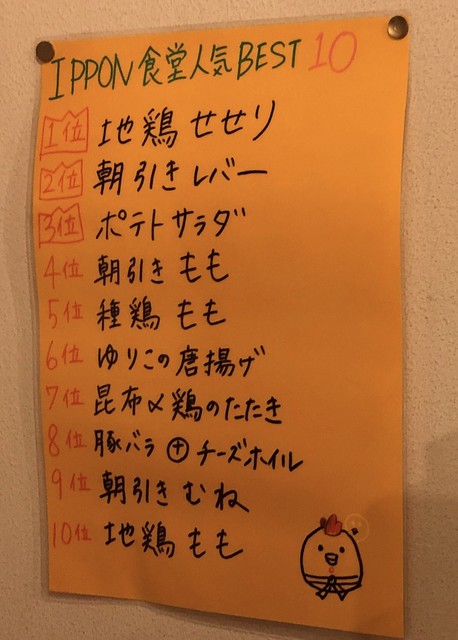 IPPON食堂人気BEST10
1位 地鶏せせり
2位 朝引きレバー
3位 ポテトサラダ
4位 朝引きもも
5位 種鶏もも
6位 ゆりこの唐揚げ
7位 昆布〆鶏のたたき
8位 豚バラ⊕チーズホイル
9位 朝引きむね
10位 地鶏もも